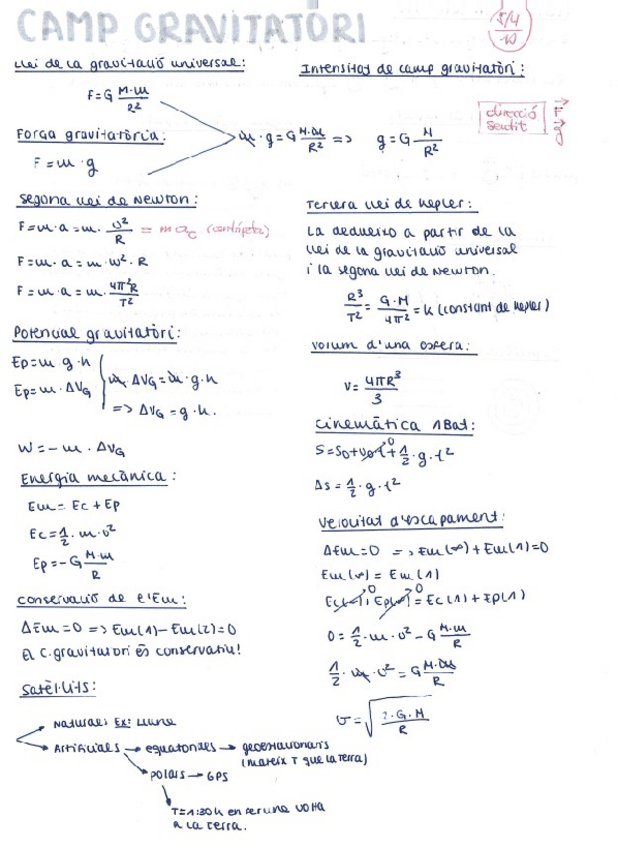 CAMP GRAVITATORI
5/4
10
Llei de la gravitació universal:
F=G M·m/R²
Força gravitatòria:
F=m·g
m·g=G M·m/R² => g=G M/R²
Intensitat de camp gravitatòri:
direcció
sentit
F
g
Segona llei de Newton:
F=m·a=m·v²/R = m ac (centrípeta)
F=m·a=m·w²·R
F=m·a=m·4π²R/T²
Tercera llei de Kepler:
La dedueixo a partir de la
llei de la gravitació universal
i la segona llei de Newton.
R³/T² = G·M/4π² = K (constant de Kepler)
Potencial gravitatòri:
Ep=m·g·h
Ep=m·ΔVG
m·ΔVG=m·g·h
=> ΔVG=g·h.
W=-m·ΔVG
Volum d'una esfera:
V=4πR³/3
Cinemàtica 1Bat:
S=S0+v0t+1/2·g·t²
0
Δs=1/2·g·t²
Energia mecànica:
Em=Ec+Ep
Ec=1/2·m·v²
Ep=-G M·m/R
Velocitat d'escapament:
ΔEm=0 => Em(∞)+Em(1)=0
Em(∞)=Em(1)
Ec(∞)+Ep(∞)=Ec(1)+Ep(1)
0 0
0=1/2·m·v²-G M·m/R
1/2·m·v²=G M·m/R
v=√2·G·M/R
Conservació de l'Em:
ΔEm=0 => Em(1)-Em(2)=0
El c.gravitatori és conservatiu!
Satèl·lits:
Naturals: Ex: Lluna
Artificials → equatorials → geoestacionaris
(mateix T que la terra)
polars → GPS
T=1:30h en fer una volta
a la terra.